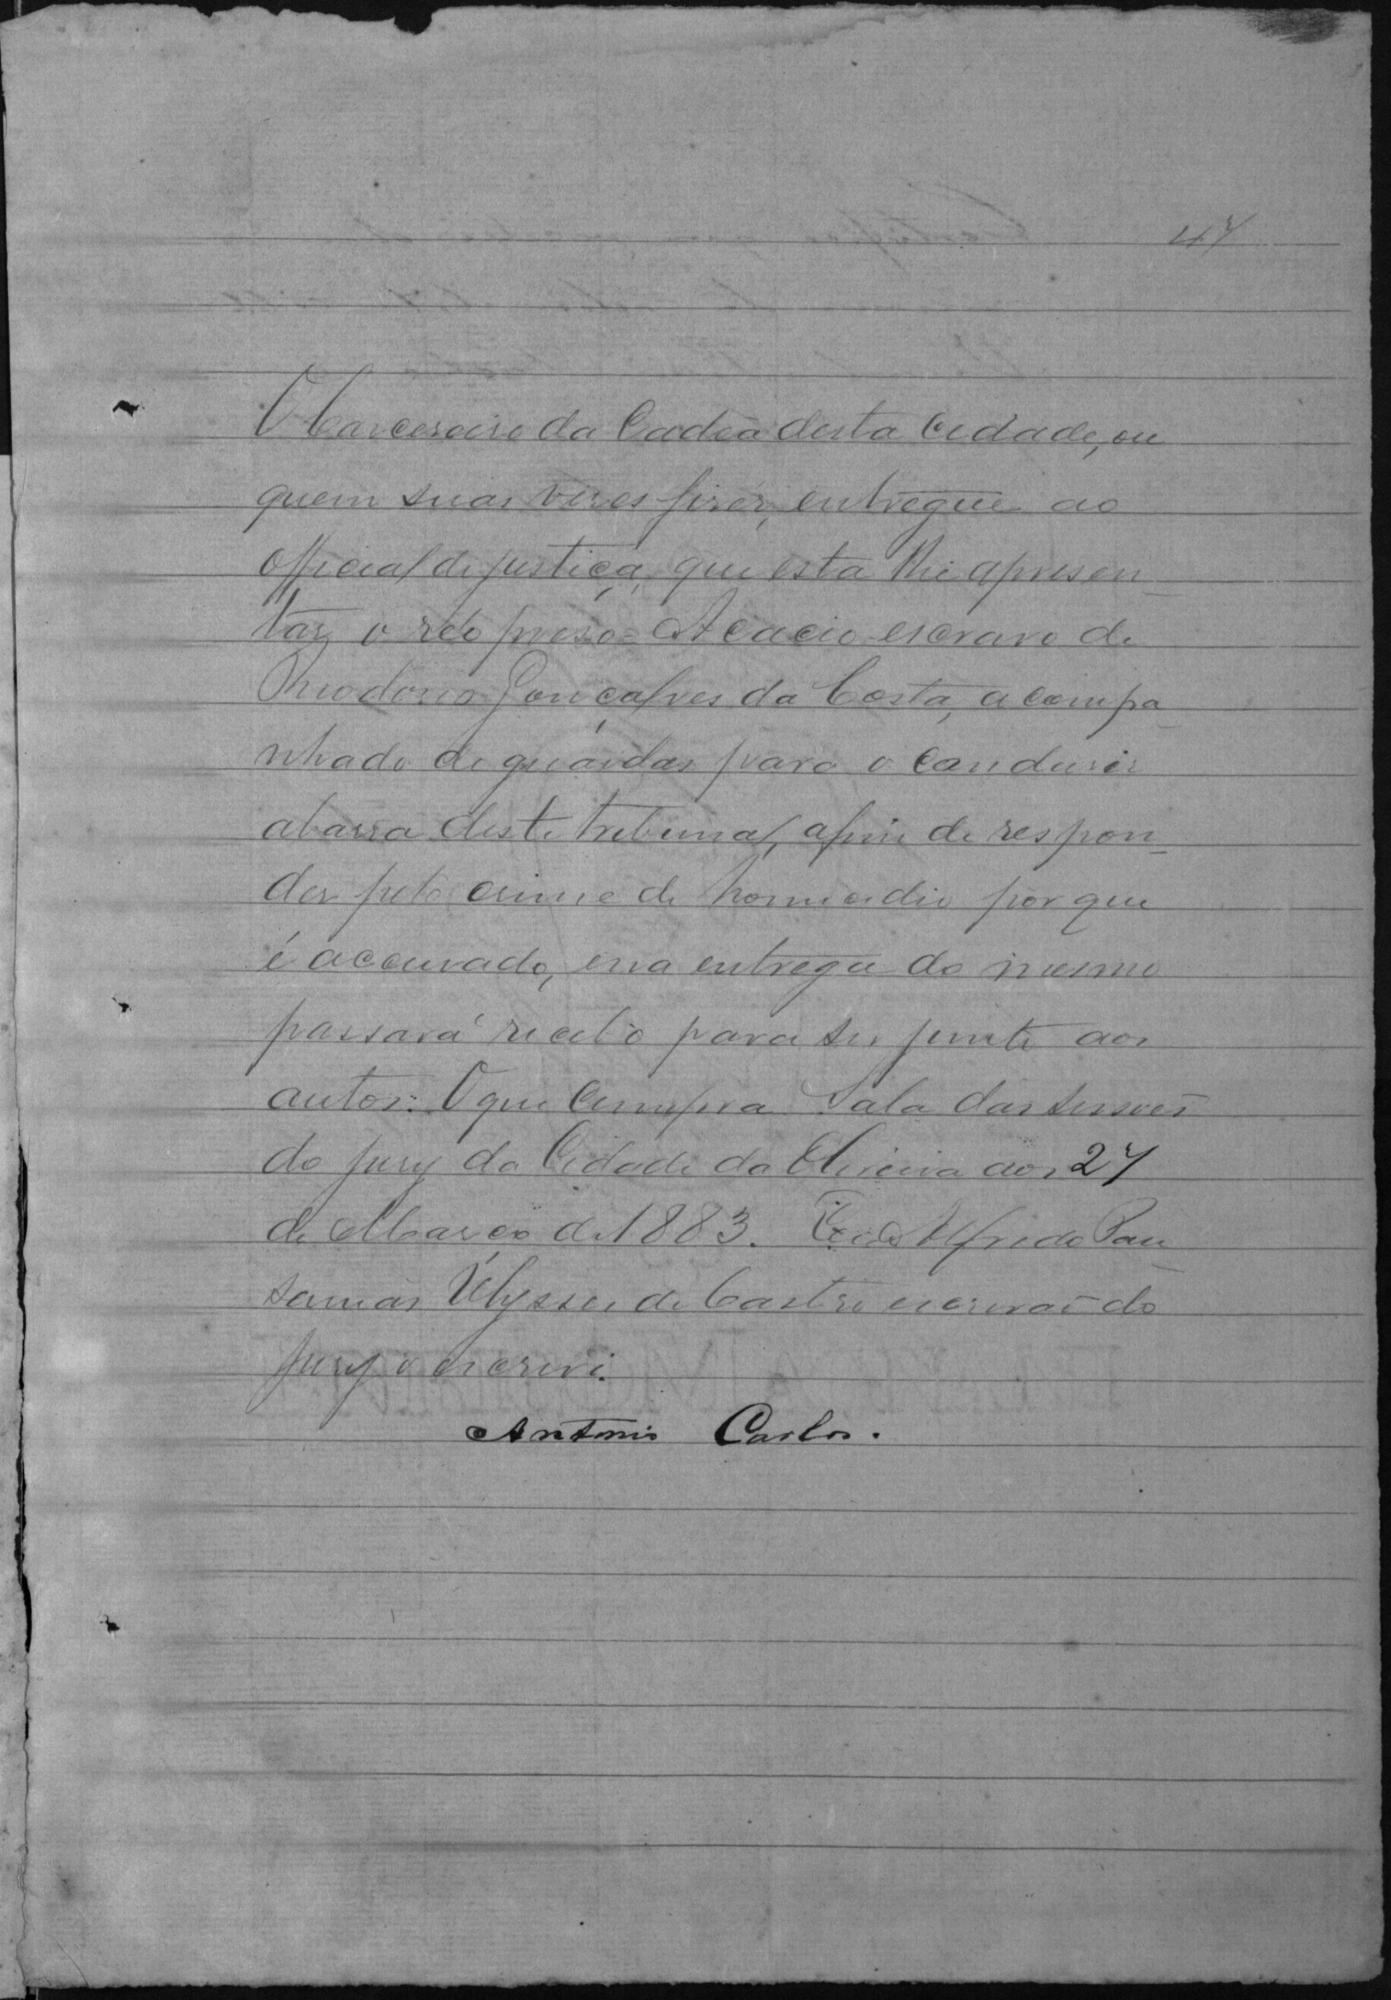 47
O Carcereiro da Cadêa desta Cidade, ou
quem suas veses firér, entregue ao
official de justiça, que esta lhe apresen_
tar, o réo preso= Acacio escravo de
Theodoro Gonçalves da Costa, acompa_
nhado de guardas para o condusir
a barra deste tribunal, afim de respon_
der pelo crime de homicidio por que
é accusado, e na entrega do mesmo
passará recibo para ser junto aos
autos. O que cumpra Sala das sessões
do jury da Cidade da Oliveira aos 27
de Março de 1883. Eu Alfredo Pau
sanias Ulysses de Castro escrivaõ do
jury o escrevi.
Antonio Carlos.